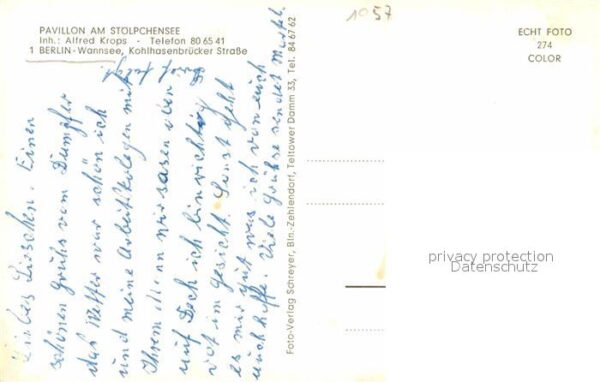 PAVILLON AM STOLPCHENSEE
Inh.: Alfred Krops - Telefon 80 65 41
1 BERLIN-Wannsee, Kohlhasenbrücker Straße
1057
ECHT FOTO
274
COLOR
Liebes Lieschen. Einen
schönen Gruhs vom Dampfer
das Wetter war schön ich
und meine Arbeitskolegen mit
Ihrem Mann wir sasen oben
auf Deck ich bin richtig
rot im gesicht. Sonst geht
es mir gut was ich von euch
auch hoffe. Viele Grühse sendet
Foto-Verlag Schreyer, Bln.-Zehlendorf, Teltower Damm 33, Tel. 84 67 62
privacy protection
Datenschutz